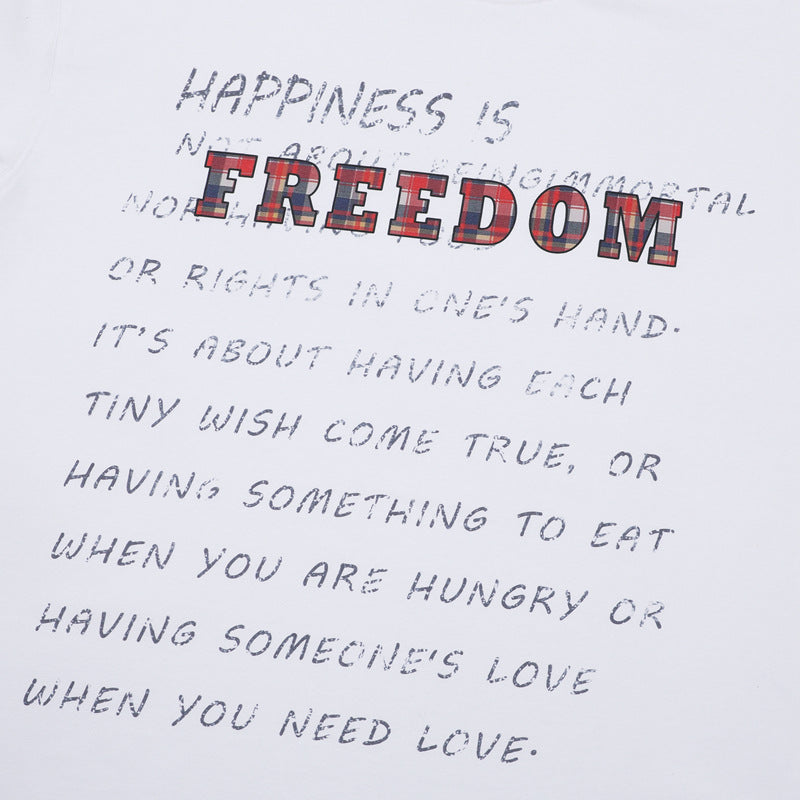 HAPPINESS IS
NOT ABOUT BEINGIMMORTAL
FREEDOM
NOR
OR RIGHTS IN ONE'S HAND.
IT'S ABOUT HAVING EACH
TINY WISH COME TRUE, OR
HAVING SOMETHING TO EAT
WHEN YOU ARE HUNGRY OR
HAVING SOMEONE'S LOVE
WHEN YOU NEED LOVE.